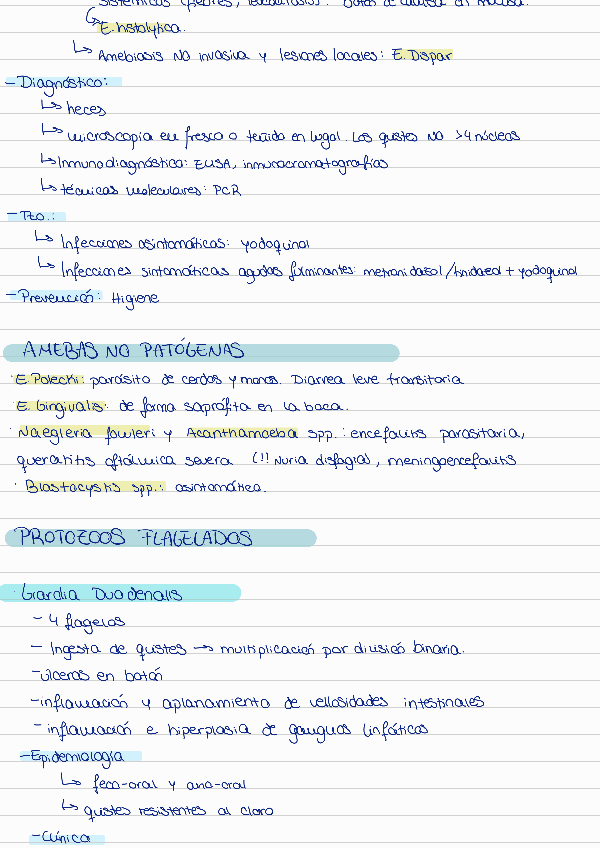 E. histolytica.
↳ Amebiasis no invasiva y lesiones locales: E. Dispar
- Diagnóstico:
↳ heces
↳ microscopía en fresco o teñido en lugol. Los quistes no >4 núcleos
↳ Inmunodiagnóstico: ELISA, inmunocromatografías
↳ técnicas moleculares: PCR
- Tto.:
↳ Infecciones asintomáticas: yodoquinol
↳ Infecciones sintomáticas agudas fulminantes: metronidazol/tinidazol + yodoquinol
- Prevención: Higiene
AMEBAS NO PATÓGENAS
· E. Polecki: parásito de cerdos y monos. Diarrea leve transitoria
· E. Gingivalis: de forma saprófita en la boca.
· Naegleria fowleri y Acanthamoeba spp.: encefalitis parasitaria,
queratitis oftálmica severa (!! Nuria disfagia), meningoencefalitis
· Blastocystis spp.: asintomática.
PROTOZOOS FLAGELADOS
· Giardia Duodenalis
- 4 flagelos
- Ingesta de quistes → multiplicación por división binaria.
- úlceras en botón
- inflamación y aplanamiento de vellosidades intestinales
- inflamación e hiperplasia de ganglios linfáticos
- Epidemiología
↳ feco-oral y ano-oral
↳ quistes resistentes al cloro
- Clínica